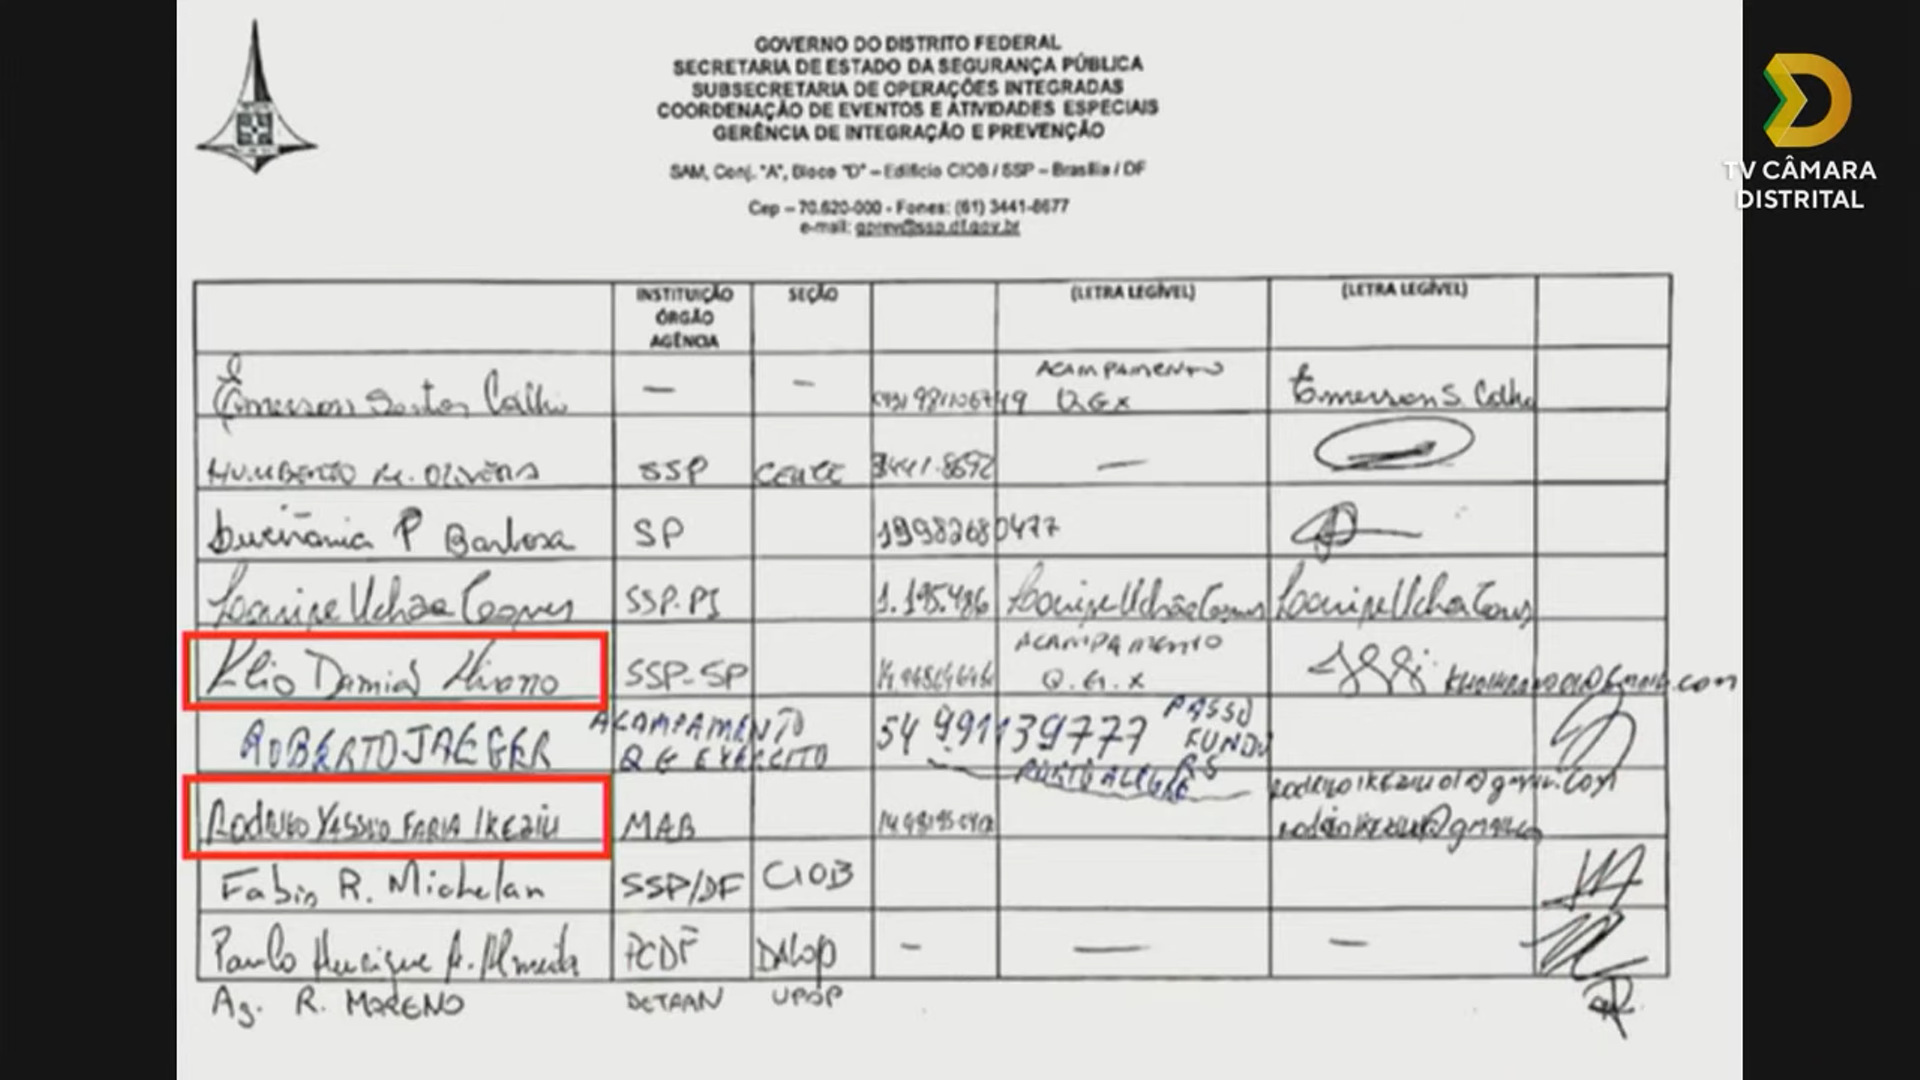 GOVERNO DO DISTRITO FEDERAL
SECRETARIA DE ESTADO DA SEGURANÇA PÚBLICA
SUBSECRETARIA DE OPERAÇÕES INTEGRADAS
COORDENAÇÃO DE EVENTOS E ATIVIDADES ESPECIAIS
GERÊNCIA DE INTEGRAÇÃO E PREVENÇÃO
SAM, Conj. "A", Bloco "D" – Edifício CIOB / SSP – Brasília / DF
Cep – 70.620-000 - Fones: (61) 3441-8677
e-mail: gprev@ssp.df.gov.br
TV CÂMARA
DISTRITAL
INSTITUIÇÃO ÓRGÃO AGÊNCIA SEÇÃO (LETRA LEGÍVEL) (LETRA LEGÍVEL)
Emerson Santos Calho — — ACAMPAMENTO QGEx Emerson S. Calho
HUMBERTO M. OLIVEIRA SSP 3441-8692 —
P Barbosa SP 19982680477
Uchôa SSP-PI 1.195.486 Uchôa Uchôa
Klio Damião Hirano SSP-SP ACAMPAMENTO Q.G.x
ROBERTO JAEGER ACAMPAMENTO QG EXÉRCITO 54 991139777 PASSO FUNDO RS
PORTO ALEGRE
RODRIGO YASSUO FARIA IKEZIU MAB rodrigoikeziu01@gmail.com
Fabio R. Michelan SSP/DF CIOB
Paulo Henrique A. Almeida PCDF DALOP — — —
Ag. R. MORENO DETRAN UPOP